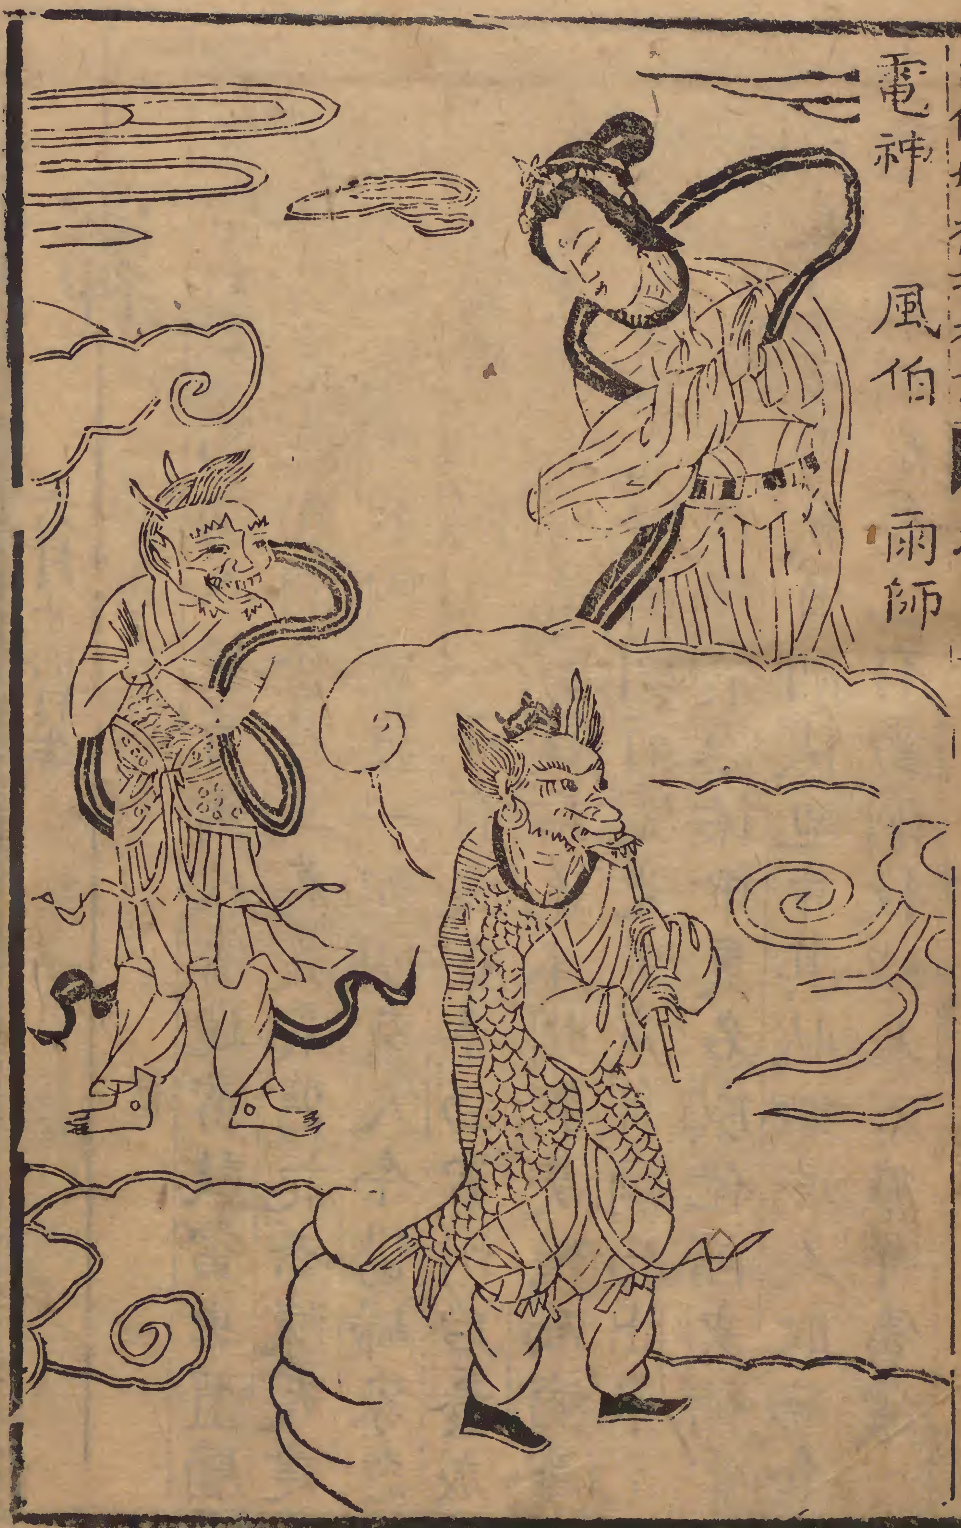 電神 風伯 雨師